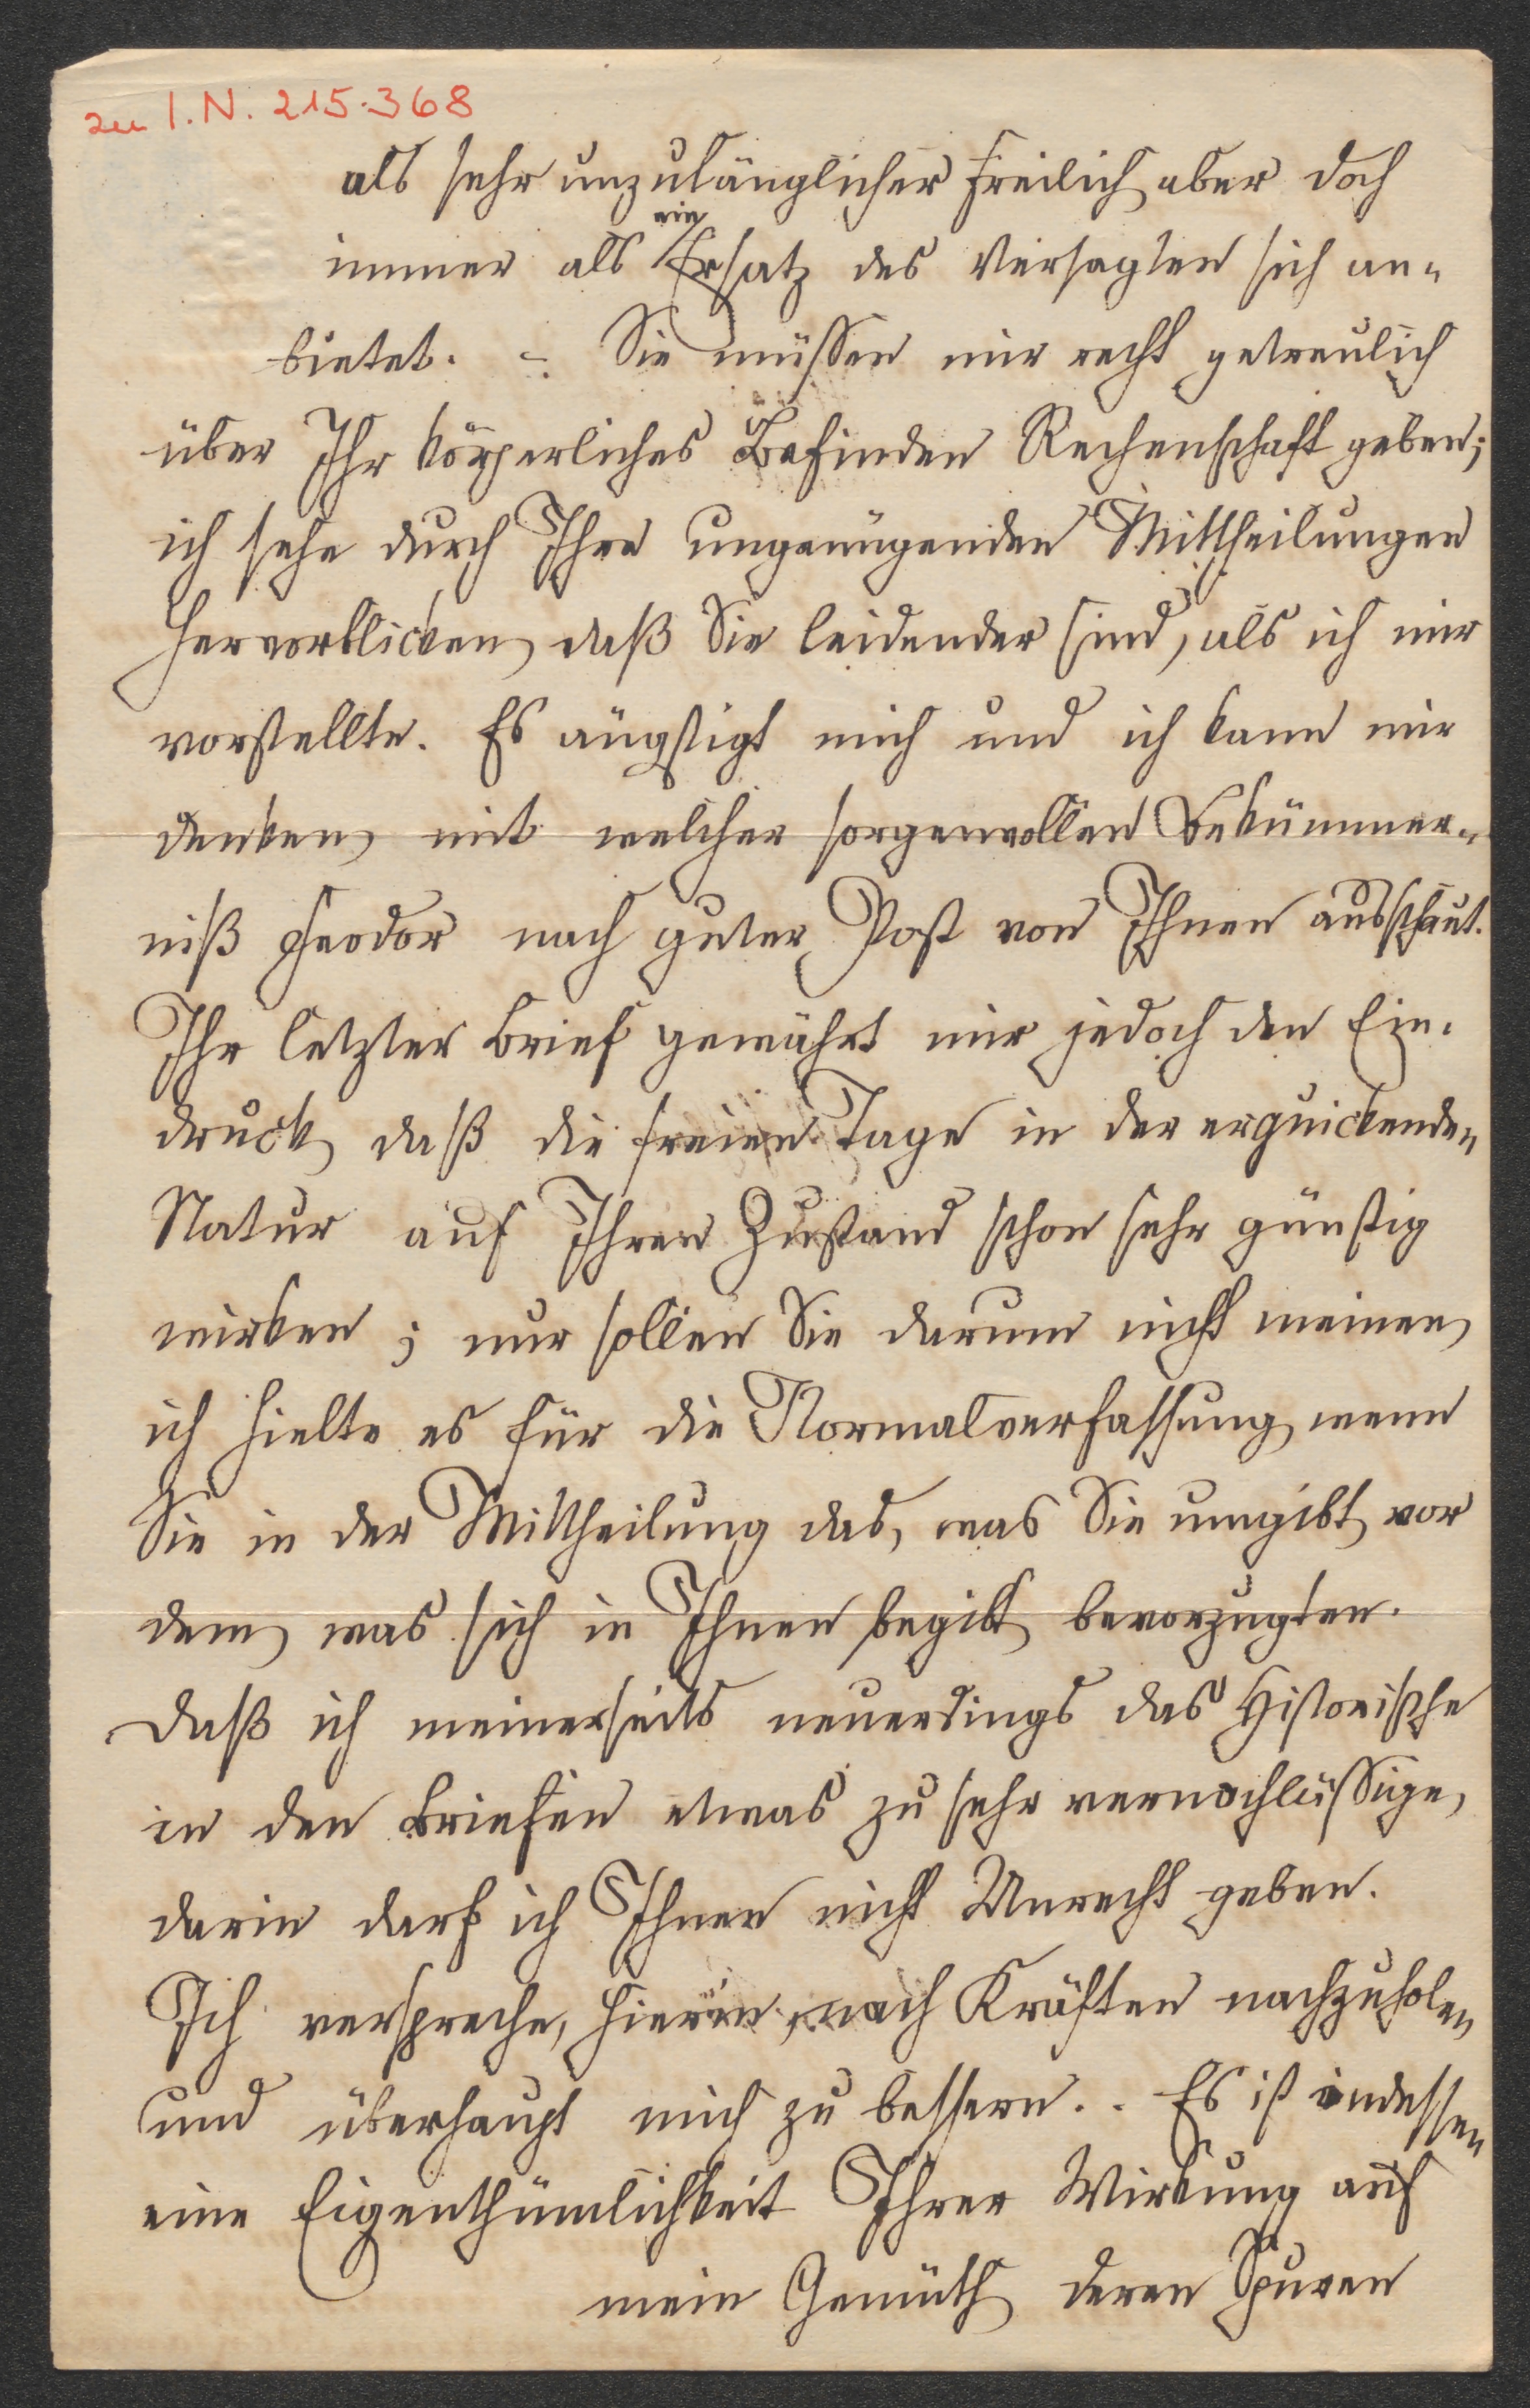 zu I.N. 215.368
als sehr unzulänglicher freilich aber doch
ein
immer als Ersatz des Versagten sich an-
bietet. – Sie müssen mir recht getreulich
über Ihr körperliches Befinden Rechenschaft geben;
ich sehe durch Ihre ungenügenden Mittheilungen
hervorblicken, daß Sie leidender sind, als ich mir
vorstellte. Es ängstigt mich und ich kann mir
denken, mit welcher sorgenvollen Bekümmer-
niß Theodor nach guter Post von Ihnen ausschaut.
Ihr letzter Brief gewährt mir jedoch den Ein-
druck, daß die freien Tage in der erquickenden
Natur auf Ihren Zustand schon sehr günstig
wirken; nur sollen Sie darum nicht meinen,
ich hielte es für die Normalverfassung, wenn
Sie in der Mittheilung das, was Sie umgibt, vor
dem, was sich in Ihnen begibt, bevorzugten.
Daß ich meinerseits neuerdings das Historische
in den Briefen etwas zu sehr vernachlässige,
darin darf ich Ihnen nicht Unrecht geben.
Ich verspreche, hierin nach Kräften nachzuholen
und überhaupt mich zu bessern. – Es ist indessen
eine Eigenthümlichkeit Ihrer Wirkung auf
mein Gemüth, deren Spuren